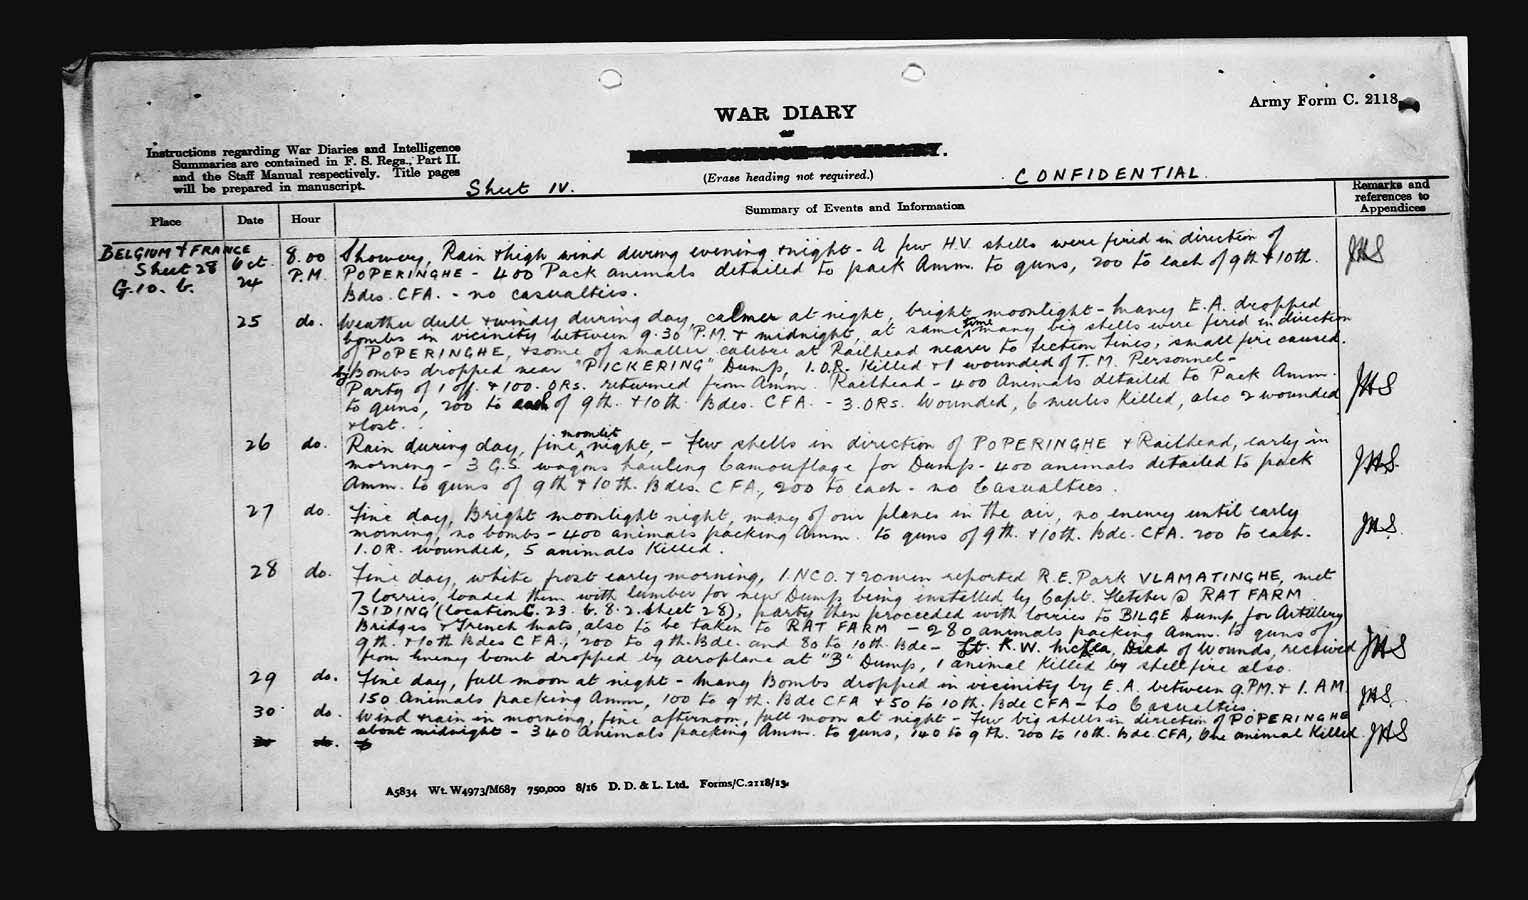 Army Form C. 2118.
WAR DIARY
or
INTELLIGENCE SUMMARY.
(Erase heading not required.)
Instructions regarding War Diaries and Intelligence
Summaries are contained in F. S. Regs., Part II.
and the Staff Manual respectively. Title pages
will be prepared in manuscript.
Sheet IV.
CONFIDENTIAL.
Place
Date
Hour
Summary of Events and Information
Remarks and
references to
Appendices
BELGIUM & FRANCE
Sheet 28
G.10. b.
Oct.
24
8.00
P.M.
Showery, Rain & high wind during evening & night - A few H.V. shells were fired in direction of
POPERINGHE - 400 Pack animals detailed to pack Amm. to guns, 200 to each of 9th & 10th.
Bdes. CFA. - no casualties.
JHS
25 do. Weather dull & windy during day, calmer at night, bright moonlight - Many E.A. dropped
bombs in vicinity between 9.30 P.M. & midnight, at same time many big shells were fired in direction
of POPERINGHE, & some of smaller calibre at Railhead nearer to Section Lines, small fire caused.
by Bombs dropped near "PICKERING" Dump, 1.O.R. Killed & 1 wounded of T.M. Personnel -
Party of 1 off. & 100. ORs. returned from Amm. Railhead - 400 Animals detailed to Pack Amm.
to guns, 200 to each of 9th. & 10th. Bdes. CFA. - 3.ORs. Wounded, 6 mules Killed, also 2 wounded
& lost.
JHS
26 do. Rain during day, fine moonlit night, - Few shells in direction of POPERINGHE & Railhead, early in
morning - 3 G.S. wagons hauling Camouflage for Dump - 400 animals detailed to pack
Amm. to guns of 9th & 10th. Bdes. CFA., 200 to each - no Casualties.
JHS
27 do. Fine day, Bright moonlight night, many of our planes in the air, no enemy until early
morning, no bombs - 400 animals packing Amm. to guns of 9th. & 10th. Bde. CFA. 200 to each.
1.OR. wounded, 5 animals Killed.
JHS
28 do. Fine day, white frost early morning, 1.NCO. & 20 men reported R.E. Park VLAMATINGHE, met
7 lorries, loaded them with lumber for new Dump being installed by Capt. Fletcher @ RAT FARM
SIDING (location C.23.b.8.2. Sheet 28), party then proceeded with lorries to BILGE Dump for Artillery
Bridges & Trench mats, also to be taken to RAT FARM - 280 animals packing Amm. to guns of
9th. & 10th Bdes CFA., 200 to 9th. Bde. and 80 to 10th. Bde - Lt. K.W. Died of Wounds, received
from Enemy bomb dropped by aeroplane at "B" Dump, 1 animal Killed by shell fire also.
JHS
29 do. Fine day, full moon at night - Many Bombs dropped in vicinity by E.A. between 9.P.M. & 1.A.M.
150 Animals packing Amm, 100 to 9th. Bde CFA & 50 to 10th. Bde CFA - No Casualties.
JHS
30 do. Wind & rain in morning, fine afternoon, full moon at night - Few big shells in direction of POPERINGHE
about midnight - 340 Animals packing Amm. to guns, 140 to 9th. 200 to 10th. Bde. CFA, One animal Killed.
JHS
A5834 Wt. W4973/M687 750,000 8/16 D. D. & L. Ltd. Forms/C.2118/13.